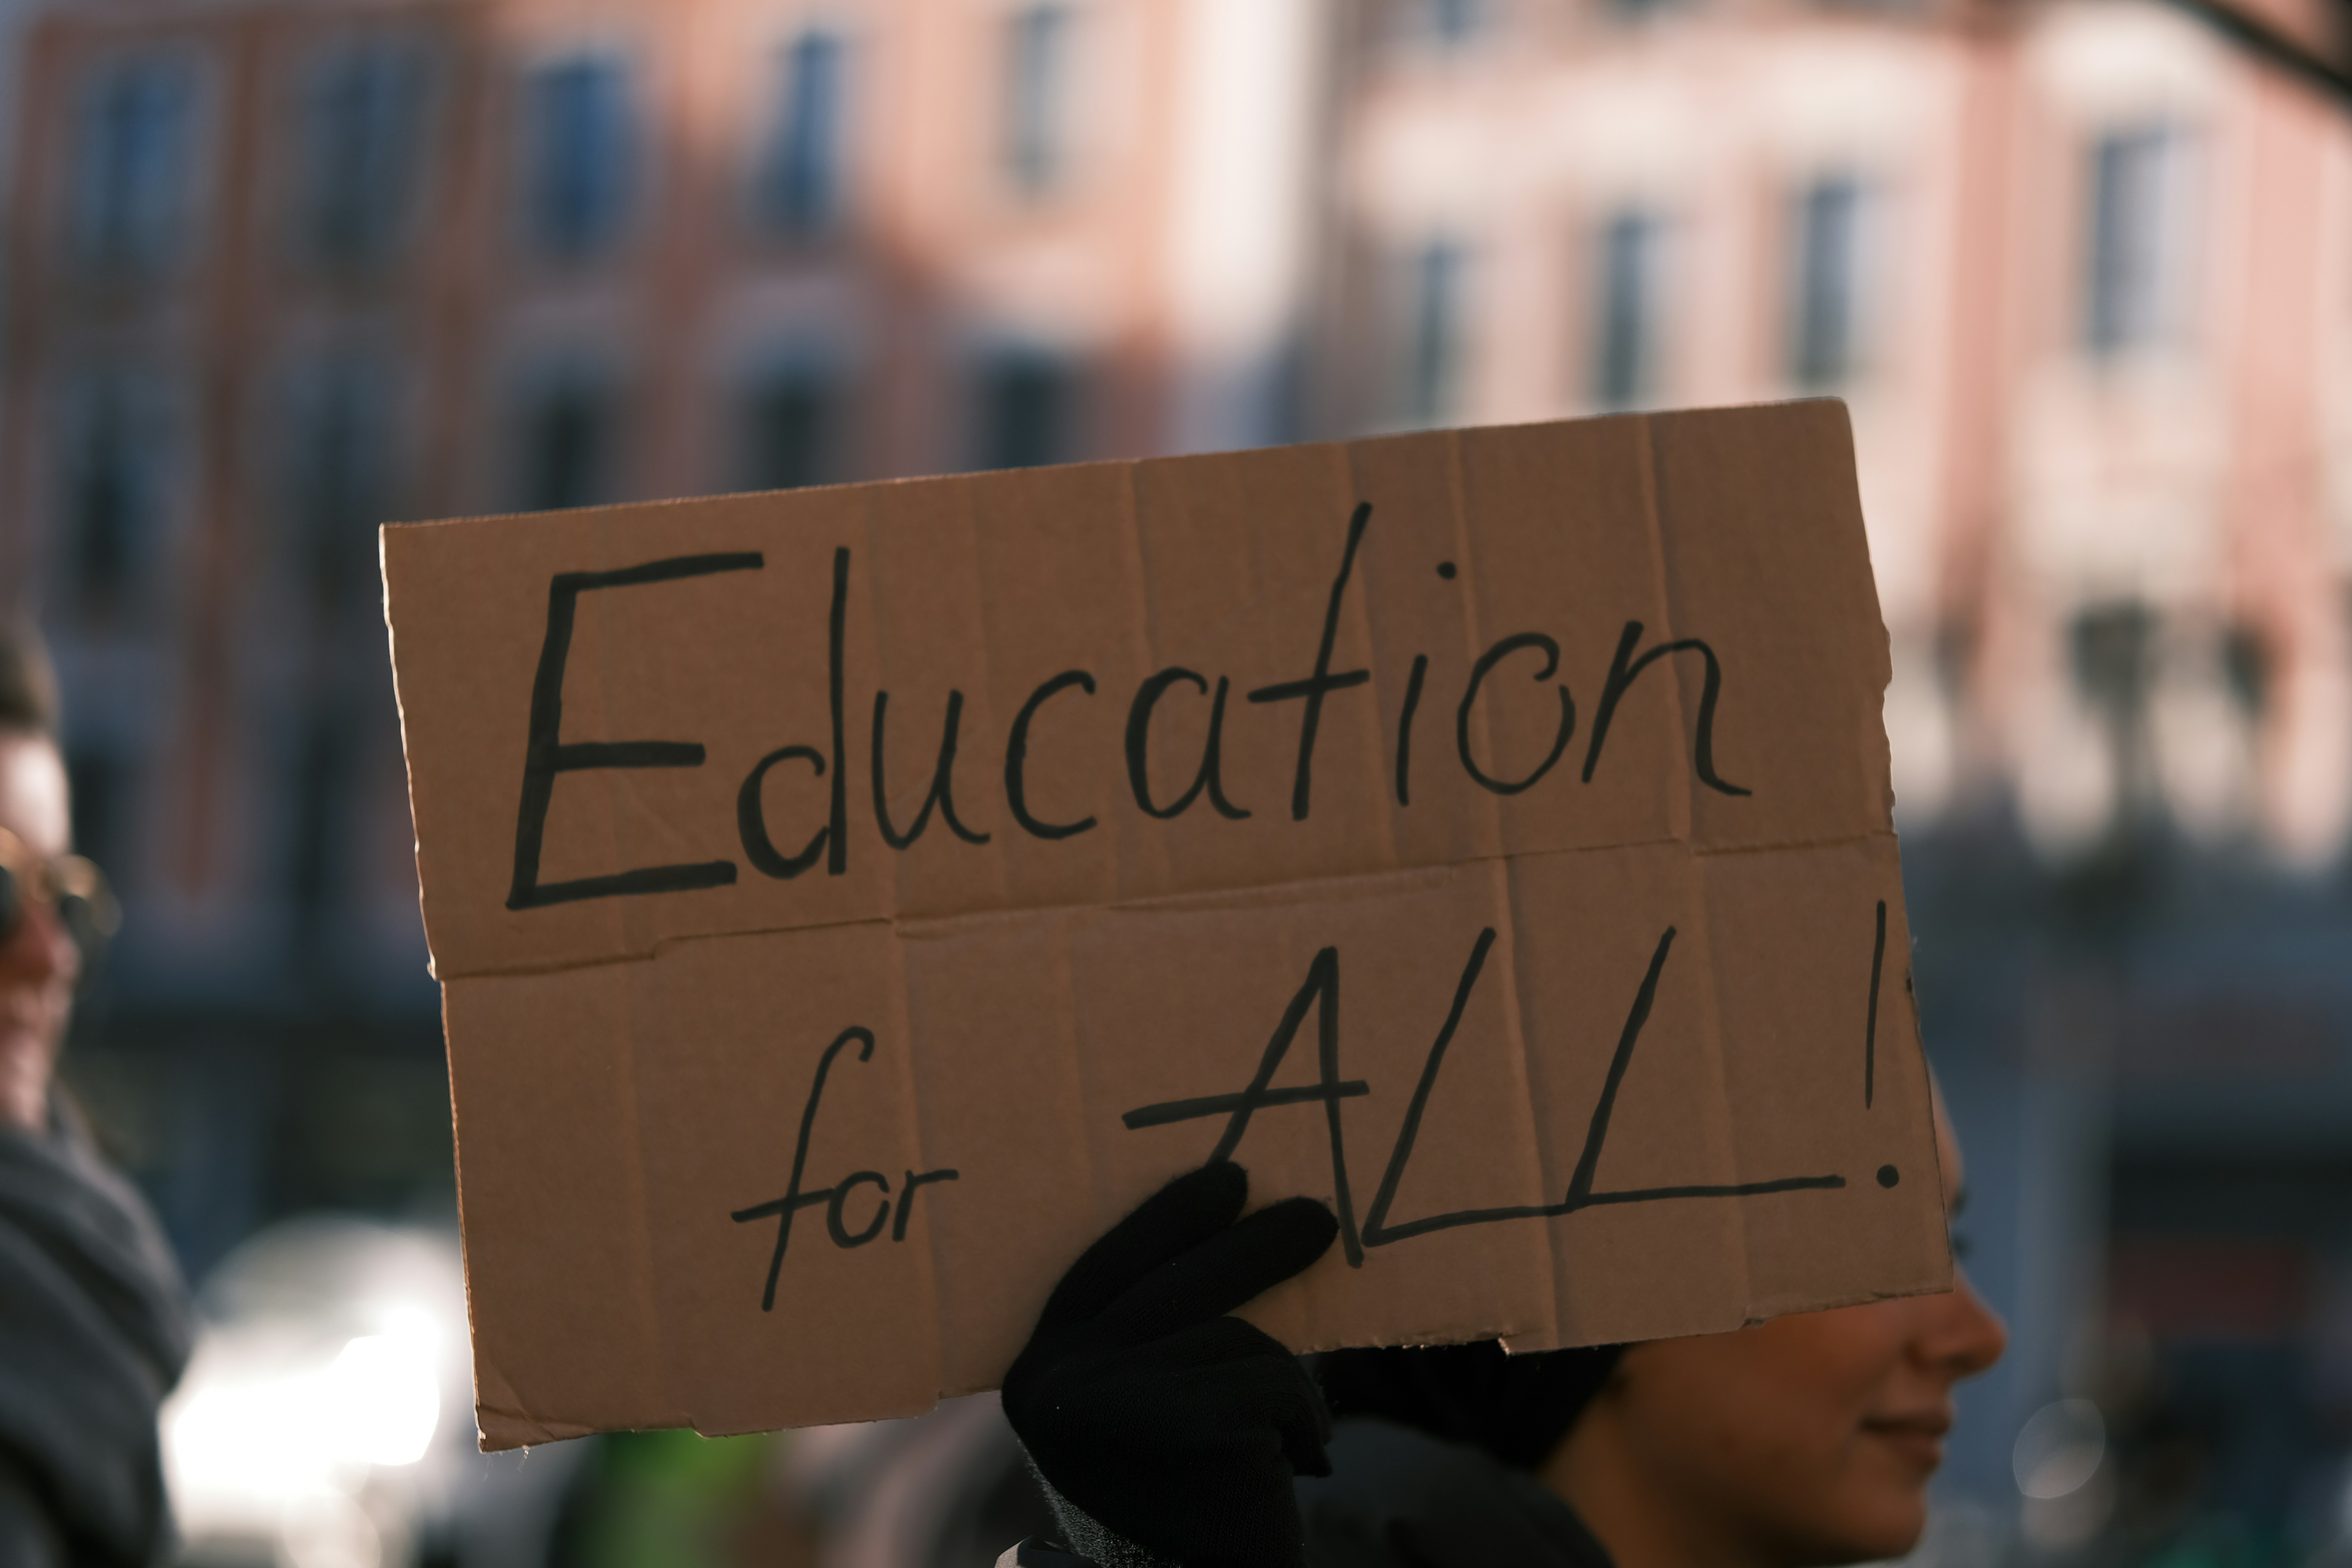 Education
for ALL!